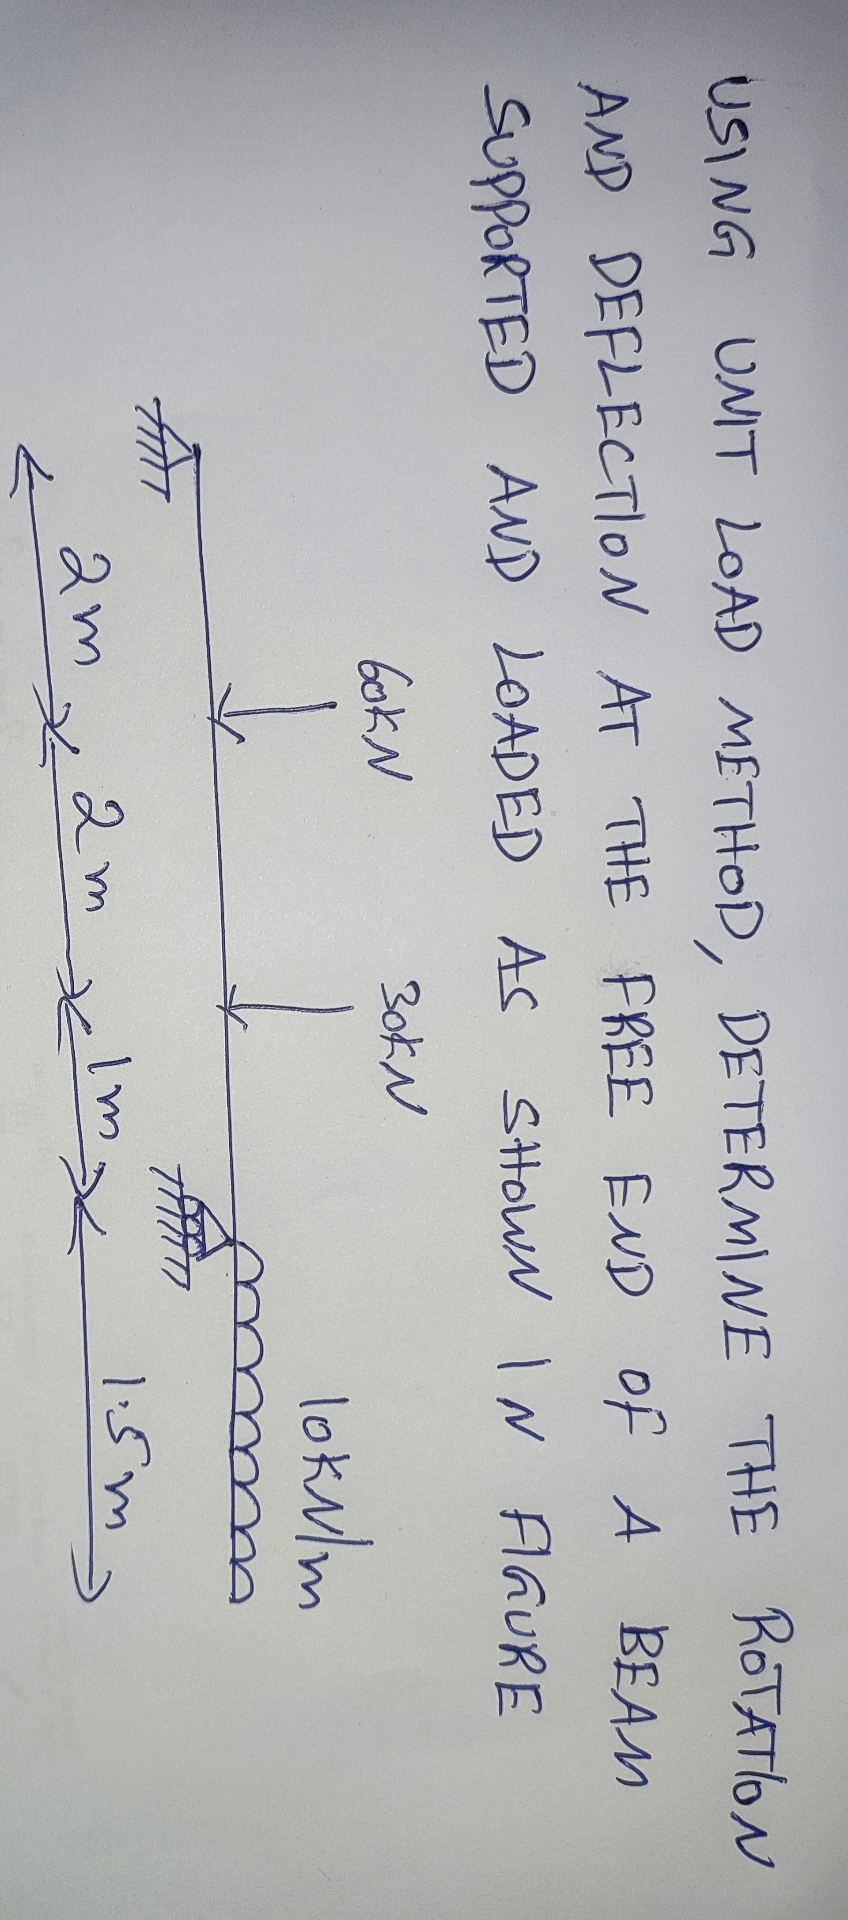 USING UNIT LOAD METHOD, DETERMINE THE ROTATION
AND DEFLECTION AT THE FREE END OF A BEAM
SUPPORTED AND LOADED AS SHOWN IN FIGURE
60KN 30KN 10KN/m
2m 2m 1m 1.5m